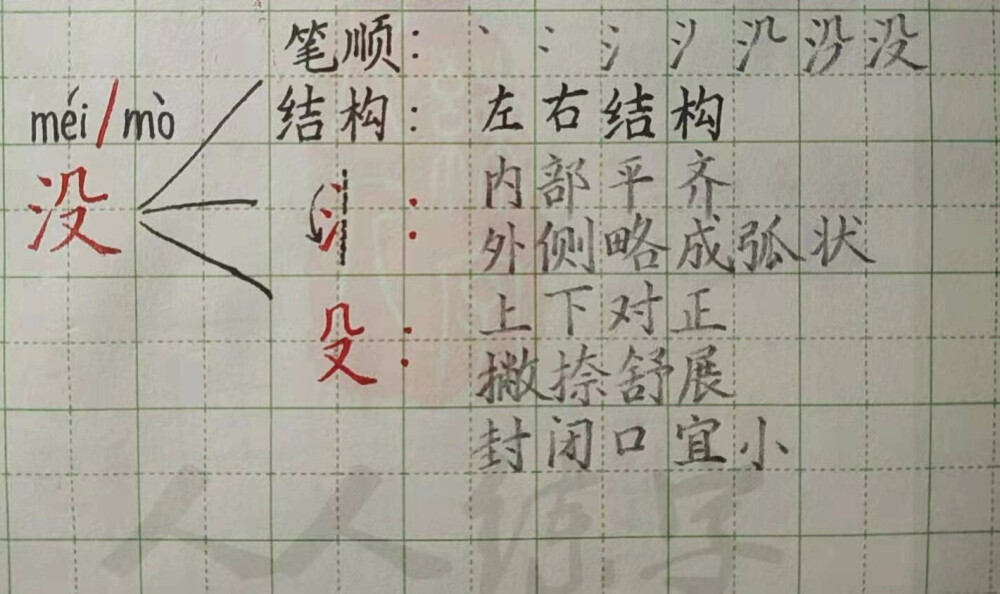 笔顺：丶 冫 氵 氵 沉 没 没
结构：左右结构
méi/mò
没
氵：内部平齐
外侧略成弧状
殳：上下对正
撇捺舒展
封闭口宜小
人人练字